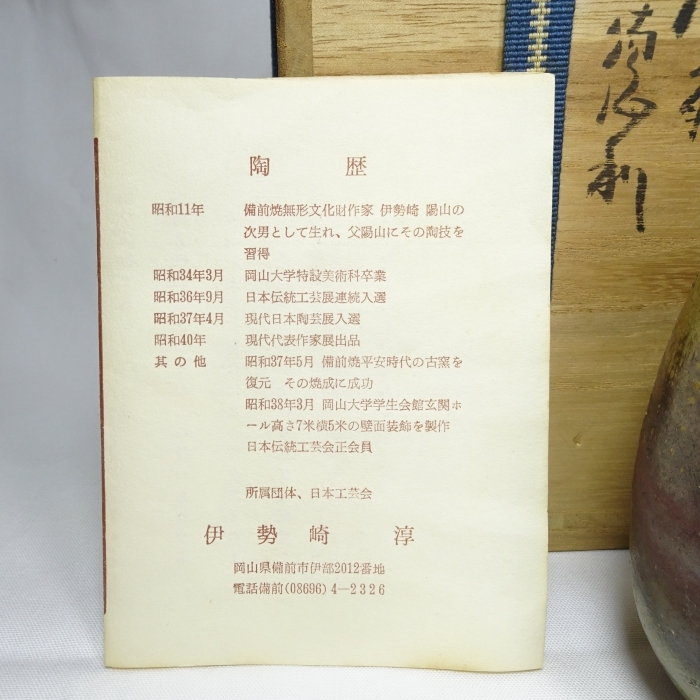 陶歴
昭和11年 備前焼無形文化財作家 伊勢崎 陽山の
次男として生れ、父陽山にその陶技を
習得
昭和34年3月 岡山大学特設美術科卒業
昭和36年9月 日本伝統工芸展連続入選
昭和37年4月 現代日本陶芸展入選
昭和40年 現代代表作家展出品
其の他 昭和37年5月 備前焼平安時代の古窯を
復元 その焼成に成功
昭和38年3月 岡山大学学生会館玄関ホ
ール高さ7米横5米の壁面装飾を製作
日本伝統工芸会正会員
所属団体、日本工芸会
伊勢崎 淳
岡山県備前市伊部2012番地
電話備前(08696)4—2326